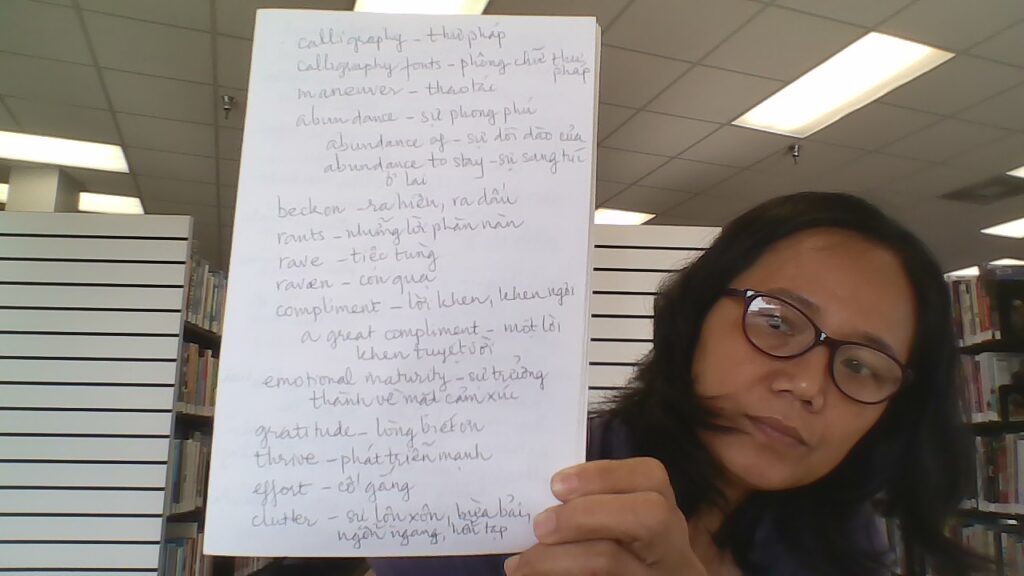 calligraphy – thư pháp
calligraphy fonts – phông chữ thư
pháp
maneuver – thao tác
abundance – sự phong phú
abundance of – sự dồi dào của
abundance to stay – sự sang trí
ở lại
beckon – ra hiệu, ra dấu
rants – những lời phàn nàn
rave – tiệc tùng
raven – con quạ
compliment – lời khen, khen ngợi
a great compliment – một lời
khen tuyệt vời
emotional maturity – sự trưởng
thành về mặt cảm xúc
gratitude – lòng biết ơn
thrive – phát triển mạnh
effort – cố gắng
clutter – sự lộn xộn, bừa bãi,
ngổn ngang, hỗn tạp